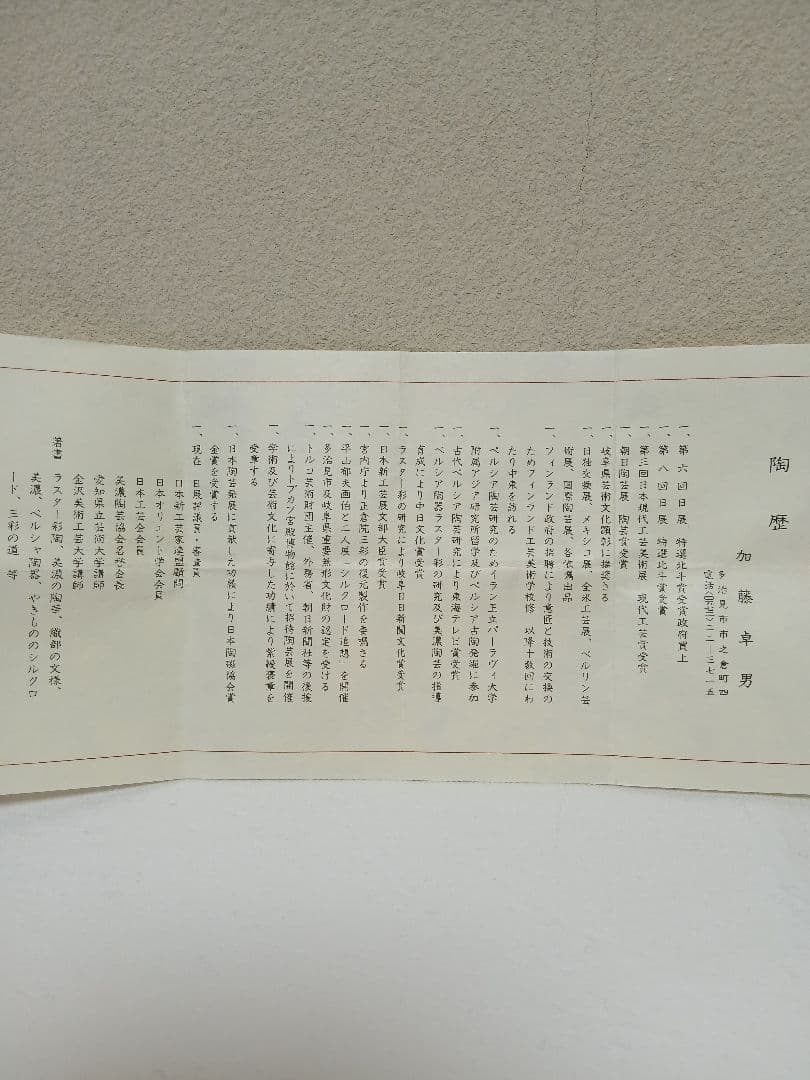 陶歴
加藤卓男
多治見市市之倉町四
一、第六回日展、特選北斗賞受賞政府買上
一、第八回日展、特選北斗賞受賞
一、第三回日本現代工芸美術展、現代工芸賞受賞
一、朝日陶芸展、陶芸賞受賞
一、岐阜県芸術文化顕彰に推挙さる
一、日独交換展、メキシコ展、全米工芸展、ベルリン芸
術展、国際陶芸展、各依嘱出品
一、フィンランド政府の招聘により意匠と技術の交換の
ためフィンランド工芸美術学校修 以降十数回にわ
たり中東を訪れる
一、ペルシア陶芸研究のためイラン王立パーラヴィ大学
附属アジア研究所留学及びペルシア古陶発掘に参加
一、古代ペルシア陶芸研究により東海テレビ賞受賞
一、ペルシア陶器ラスター彩の研究及び美濃陶芸の指導
育成により中日文化賞受賞
一、ラスター彩の研究により岐阜日日新聞文化賞受賞
一、日本新工芸展文部大臣賞受賞
一、宮内庁より正倉院三彩の復元製作を委嘱さる
一、平山郁夫画伯と二人展「シルクロード追想」を開催
一、多治見市及岐阜県重要無形文化財の認定を受ける
一、トルコ芸術財団主催、外務省、朝日新聞社等の後援
によりトプカプ宮殿博物館に於いて招待陶芸展を開催
一、学術及び芸術文化に寄与した功績により紫綬褒章を
受章する
一、日本陶芸発展に貢献した功績により日本陶磁協会賞
金賞を受賞する
一、現在 日展評議員・審査員
日本新工芸家連盟顧問
日本オリエント学会会員
日本工芸会会員
美濃陶芸協会名誉会長
愛知県立芸術大学講師
金沢美術工芸大学講師
著書 ラスター彩陶、美濃の陶芸、織部の文様、
美濃、ペルシャ陶器、やきもののシルクロ
ード、三彩の道 等